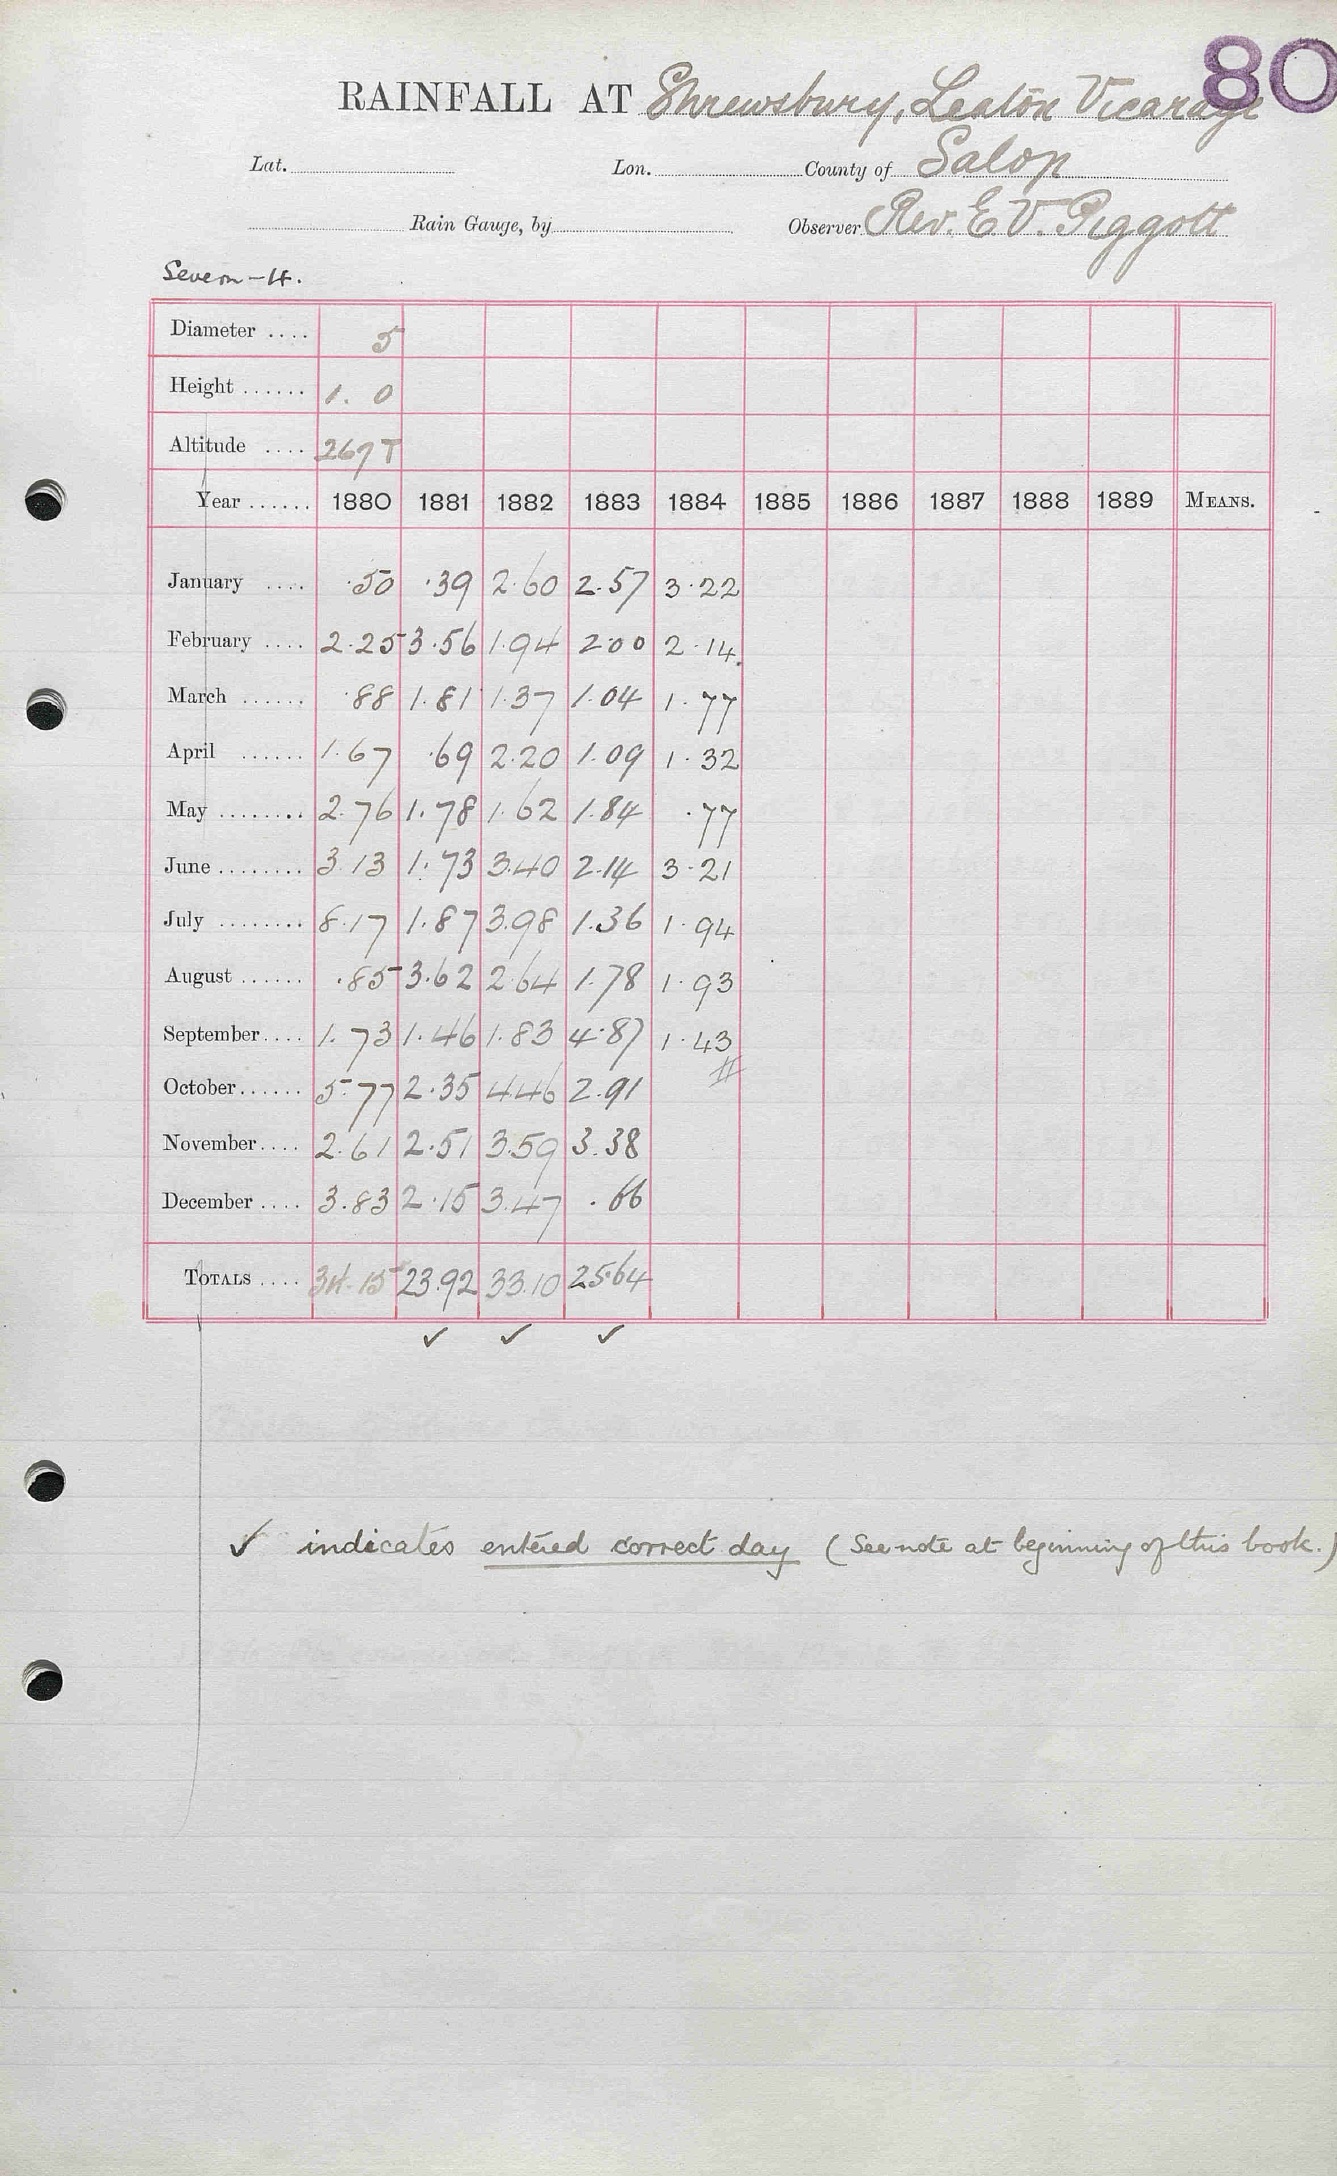 80
RAINFALL AT Shrewsbury, Leaton Vicarage
Lat. Lon. County of Salop
Rain Gauge, by Observer Rev. E V. Piggott
Severn - 4.
Diameter .... 5
Height ...... 1. 0
Altitude .... 267 T
Year ...... 1880 1881 1882 1883 1884 1885 1886 1887 1888 1889 MEANS.
January .... .50 .39 2.60 2.57 3.22
February .... 2.25 3.56 1.94 2.00 2.14
March ...... .88 1.81 1.37 1.04 1.77
April ...... 1.67 .69 2.20 1.09 1.32
May ........ 2.76 1.78 1.62 1.84 .77
June ........ 3.13 1.73 3.40 2.14 3.21
July ........ 8.17 1.87 3.98 1.36 1.94
August ...... .85 3.62 2.64 1.78 1.93
September .... 1.73 1.46 1.83 4.87 1.43
October ...... 5.77 2.35 4.46 2.91
November .... 2.61 2.51 3.59 3.38
December .... 3.83 2.15 3.47 .66
TOTALS .... 34.15 23.92 33.10 25.64
✓ ✓ ✓
✓ indicates entered correct day (See note at beginning of this book.)